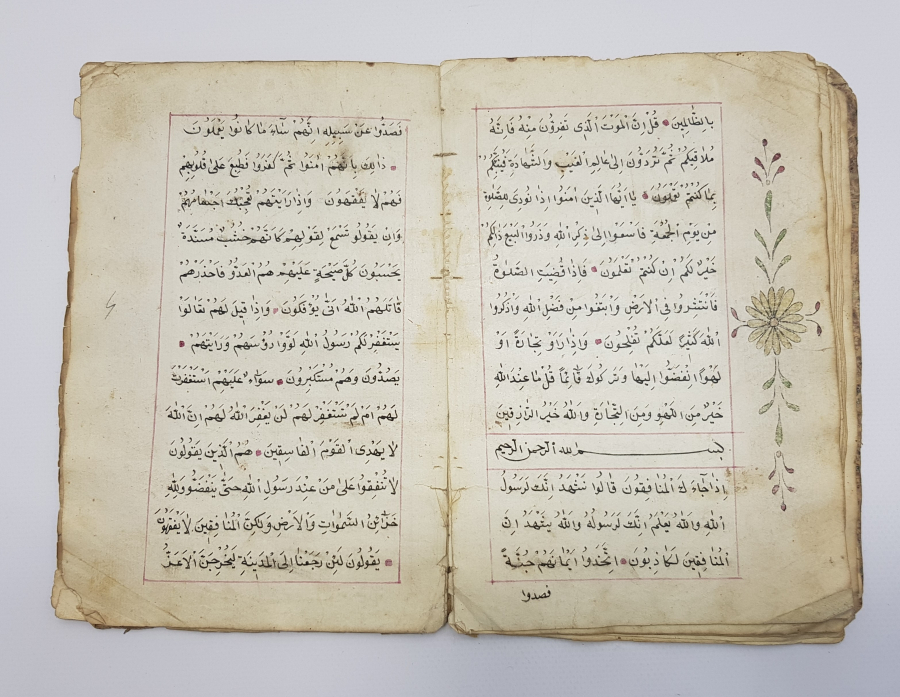 بِالظَّالِمِينَ قُلْ اِنَّ الْمَوْتَ الَّذِى تَفِرُّونَ مِنْهُ فَاِنَّهُ
مُلَاقِيكُمْ ثُمَّ تُرَدُّونَ اِلٰى عَالِمِ الْغَيْبِ وَالشَّهَادَةِ فَيُنَبِّئُكُمْ
بِمَا كُنْتُمْ تَعْمَلُونَ يَا اَيُّهَا الَّذِينَ اٰمَنُوا اِذَا نُودِىَ لِلصَّلٰوةِ
مِنْ يَوْمِ الْجُمُعَةِ فَاسْعَوْا اِلٰى ذِكْرِ اللّٰهِ وَذَرُوا الْبَيْعَ ذٰلِكُمْ
خَيْرٌ لَكُمْ اِنْ كُنْتُمْ تَعْلَمُونَ فَاِذَا قُضِيَتِ الصَّلٰوةُ
فَانْتَشِرُوا فِى الْاَرْضِ وَابْتَغُوا مِنْ فَضْلِ اللّٰهِ وَاذْكُرُوا
اللّٰهَ كَثِيرًا لَعَلَّكُمْ تُفْلِحُونَ وَاِذَا رَاَوْ تِجَارَةً اَوْ
لَهْوًا انْفَضُّوا اِلَيْهَا وَتَرَكُوكَ قَائِمًا قُلْ مَا عِنْدَ اللّٰهِ
خَيْرٌ مِنَ اللَّهْوِ وَمِنَ التِّجَارَةِ وَاللّٰهُ خَيْرُ الرَّازِقِينَ
بسم الله الرحمن الرحيم
اِذَا جَاءَكَ الْمُنَافِقُونَ قَالُوا نَشْهَدُ اِنَّكَ لَرَسُولُ
اللّٰهِ وَاللّٰهُ يَعْلَمُ اِنَّكَ لَرَسُولُهُ وَاللّٰهُ يَشْهَدُ اِنَّ
الْمُنَافِقِينَ لَكَاذِبُونَ اِتَّخَذُوا اَيْمَانَهُمْ جُنَّةً
فصدوا
فَصَدُّوا عَنْ سَبِيلِهِ اِنَّهُمْ سَاءَ مَا كَانُوا يَعْمَلُونَ
ذَالِكَ بِاَنَّهُمْ اٰمَنُوا ثُمَّ كَفَرُوا فَطُبِعَ عَلٰى قُلُوبِهِمْ
فَهُمْ لَا يَفْقَهُونَ وَاِذَا رَاَيْتَهُمْ تُعْجِبُكَ اَجْسَامُهُمْ
وَاِنْ يَقُولُو تَسْمَعْ لِقَوْلِهِمْ كَاَنَّهُمْ خُشُبٌ مُسَنَّدَةٌ
يَحْسَبُونَ كُلَّ صَيْحَةٍ عَلَيْهِمْ هُمُ الْعَدُوُّ فَاحْذَرْهُمْ
قَاتَلَهُمُ اللّٰهُ اَنّٰى يُؤْفَكُونَ وَاِذَا قِيلَ لَهُمْ تَعَالَوْا
يَسْتَغْفِرْ لَكُمْ رَسُولُ اللّٰهِ لَوَّوْا رُؤُسَهُمْ وَرَاَيْتَهُمْ
يَصُدُّونَ وَهُمْ مُسْتَكْبِرُونَ سَوَاءٌ عَلَيْهِمْ اَسْتَغْفَرْتَ
لَهُمْ اَمْ لَمْ تَسْتَغْفِرْ لَهُمْ لَنْ يَغْفِرَ اللّٰهُ لَهُمْ اِنَّ اللّٰهَ
لَا يَهْدِى الْقَوْمَ الْفَاسِقِينَ هُمُ الَّذِينَ يَقُولُونَ
لَا تُنْفِقُوا عَلٰى مَنْ عِنْدَ رَسُولِ اللّٰهِ حَتّٰى يَنْفَضُّوا وَلِلّٰهِ
خَزَائِنُ السَّمٰوَاتِ وَالْاَرْضِ وَلٰكِنَّ الْمُنَافِقِينَ لَا يَفْقَهُونَ
يَقُولُونَ لَئِنْ رَجَعْنَا اِلَى الْمَدِينَةِ لَيُخْرِجَنَّ الْاَعَزُّ